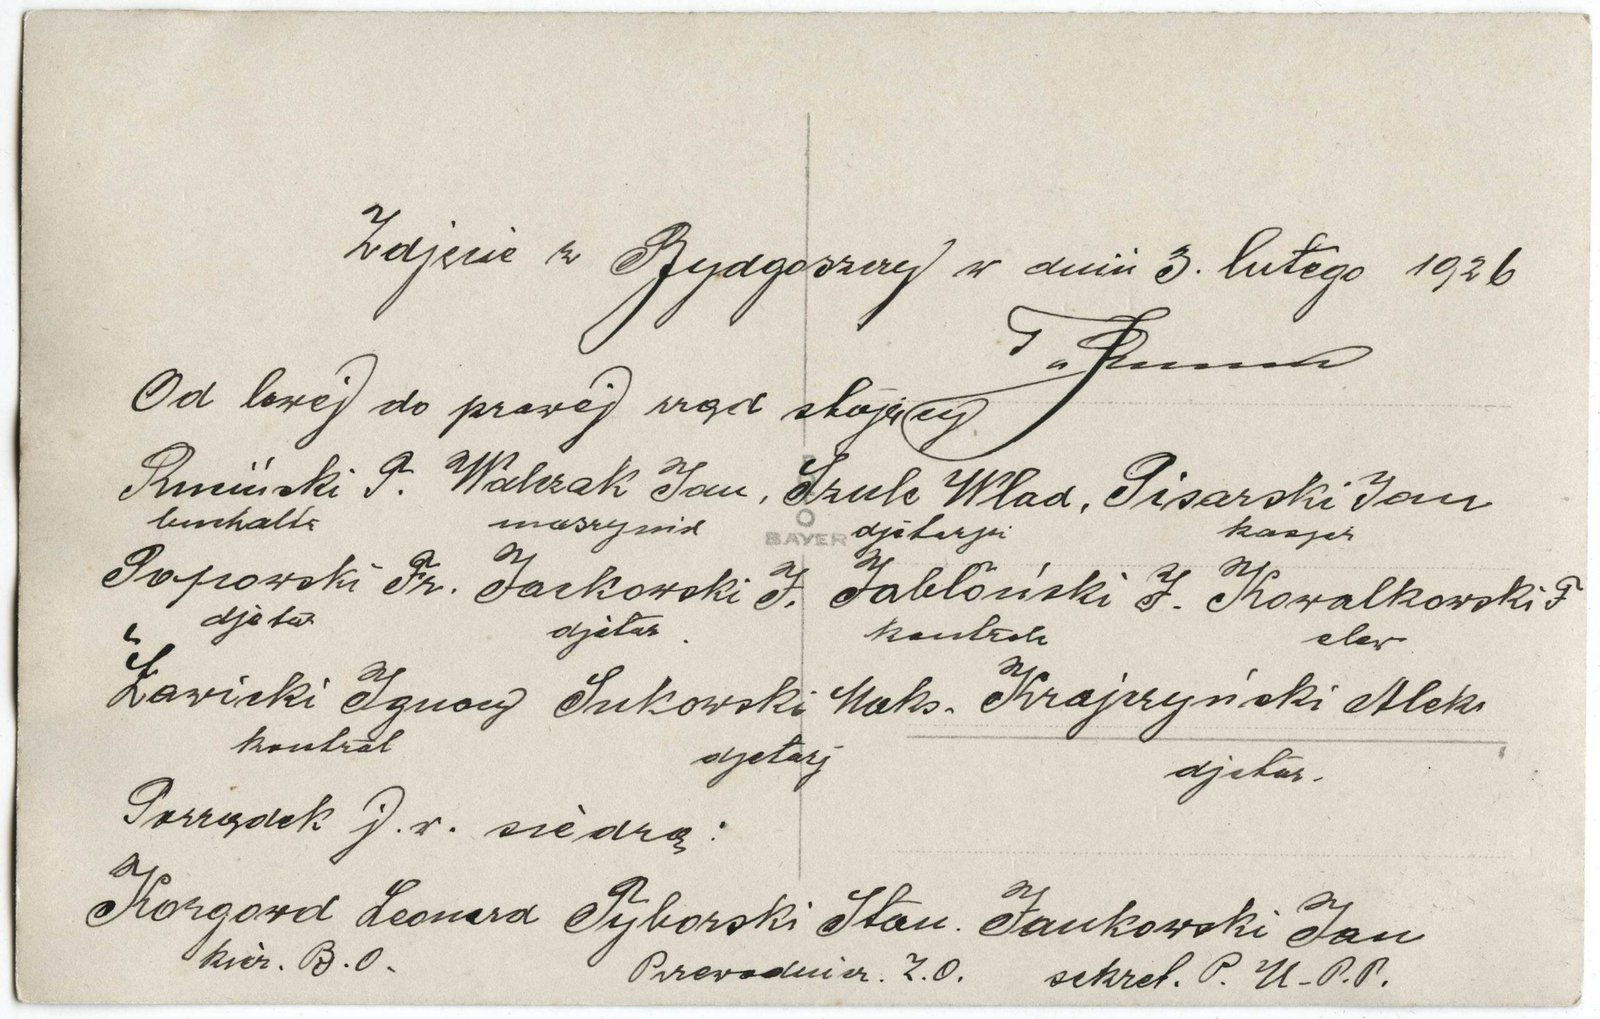 Zdjęcie z Bydgoszczy w dniu 3. lutego 1926
Od lewéj do prawéj rząd stojący
Rmiński F. Walczak Jan, Szulc Wład, Pisarski Jan
buchalt. maszynist djetarj. kasjer
Popowski Fr. Jackowski J. Jabłoński J. Kowalkowski F
djetar djetar. kontrolr elew
Zawicki Ignacy Sukowski Maks. Krajczyński Aleks
kontrol djetarj djetar.
Porządek j. w. siedzą:
Korgowd Leonard Pyborski Stan. Jankowski Jan
kier. B.O. Przewodnicz. Z.O. sekret. P. U.P.P.
BAYER